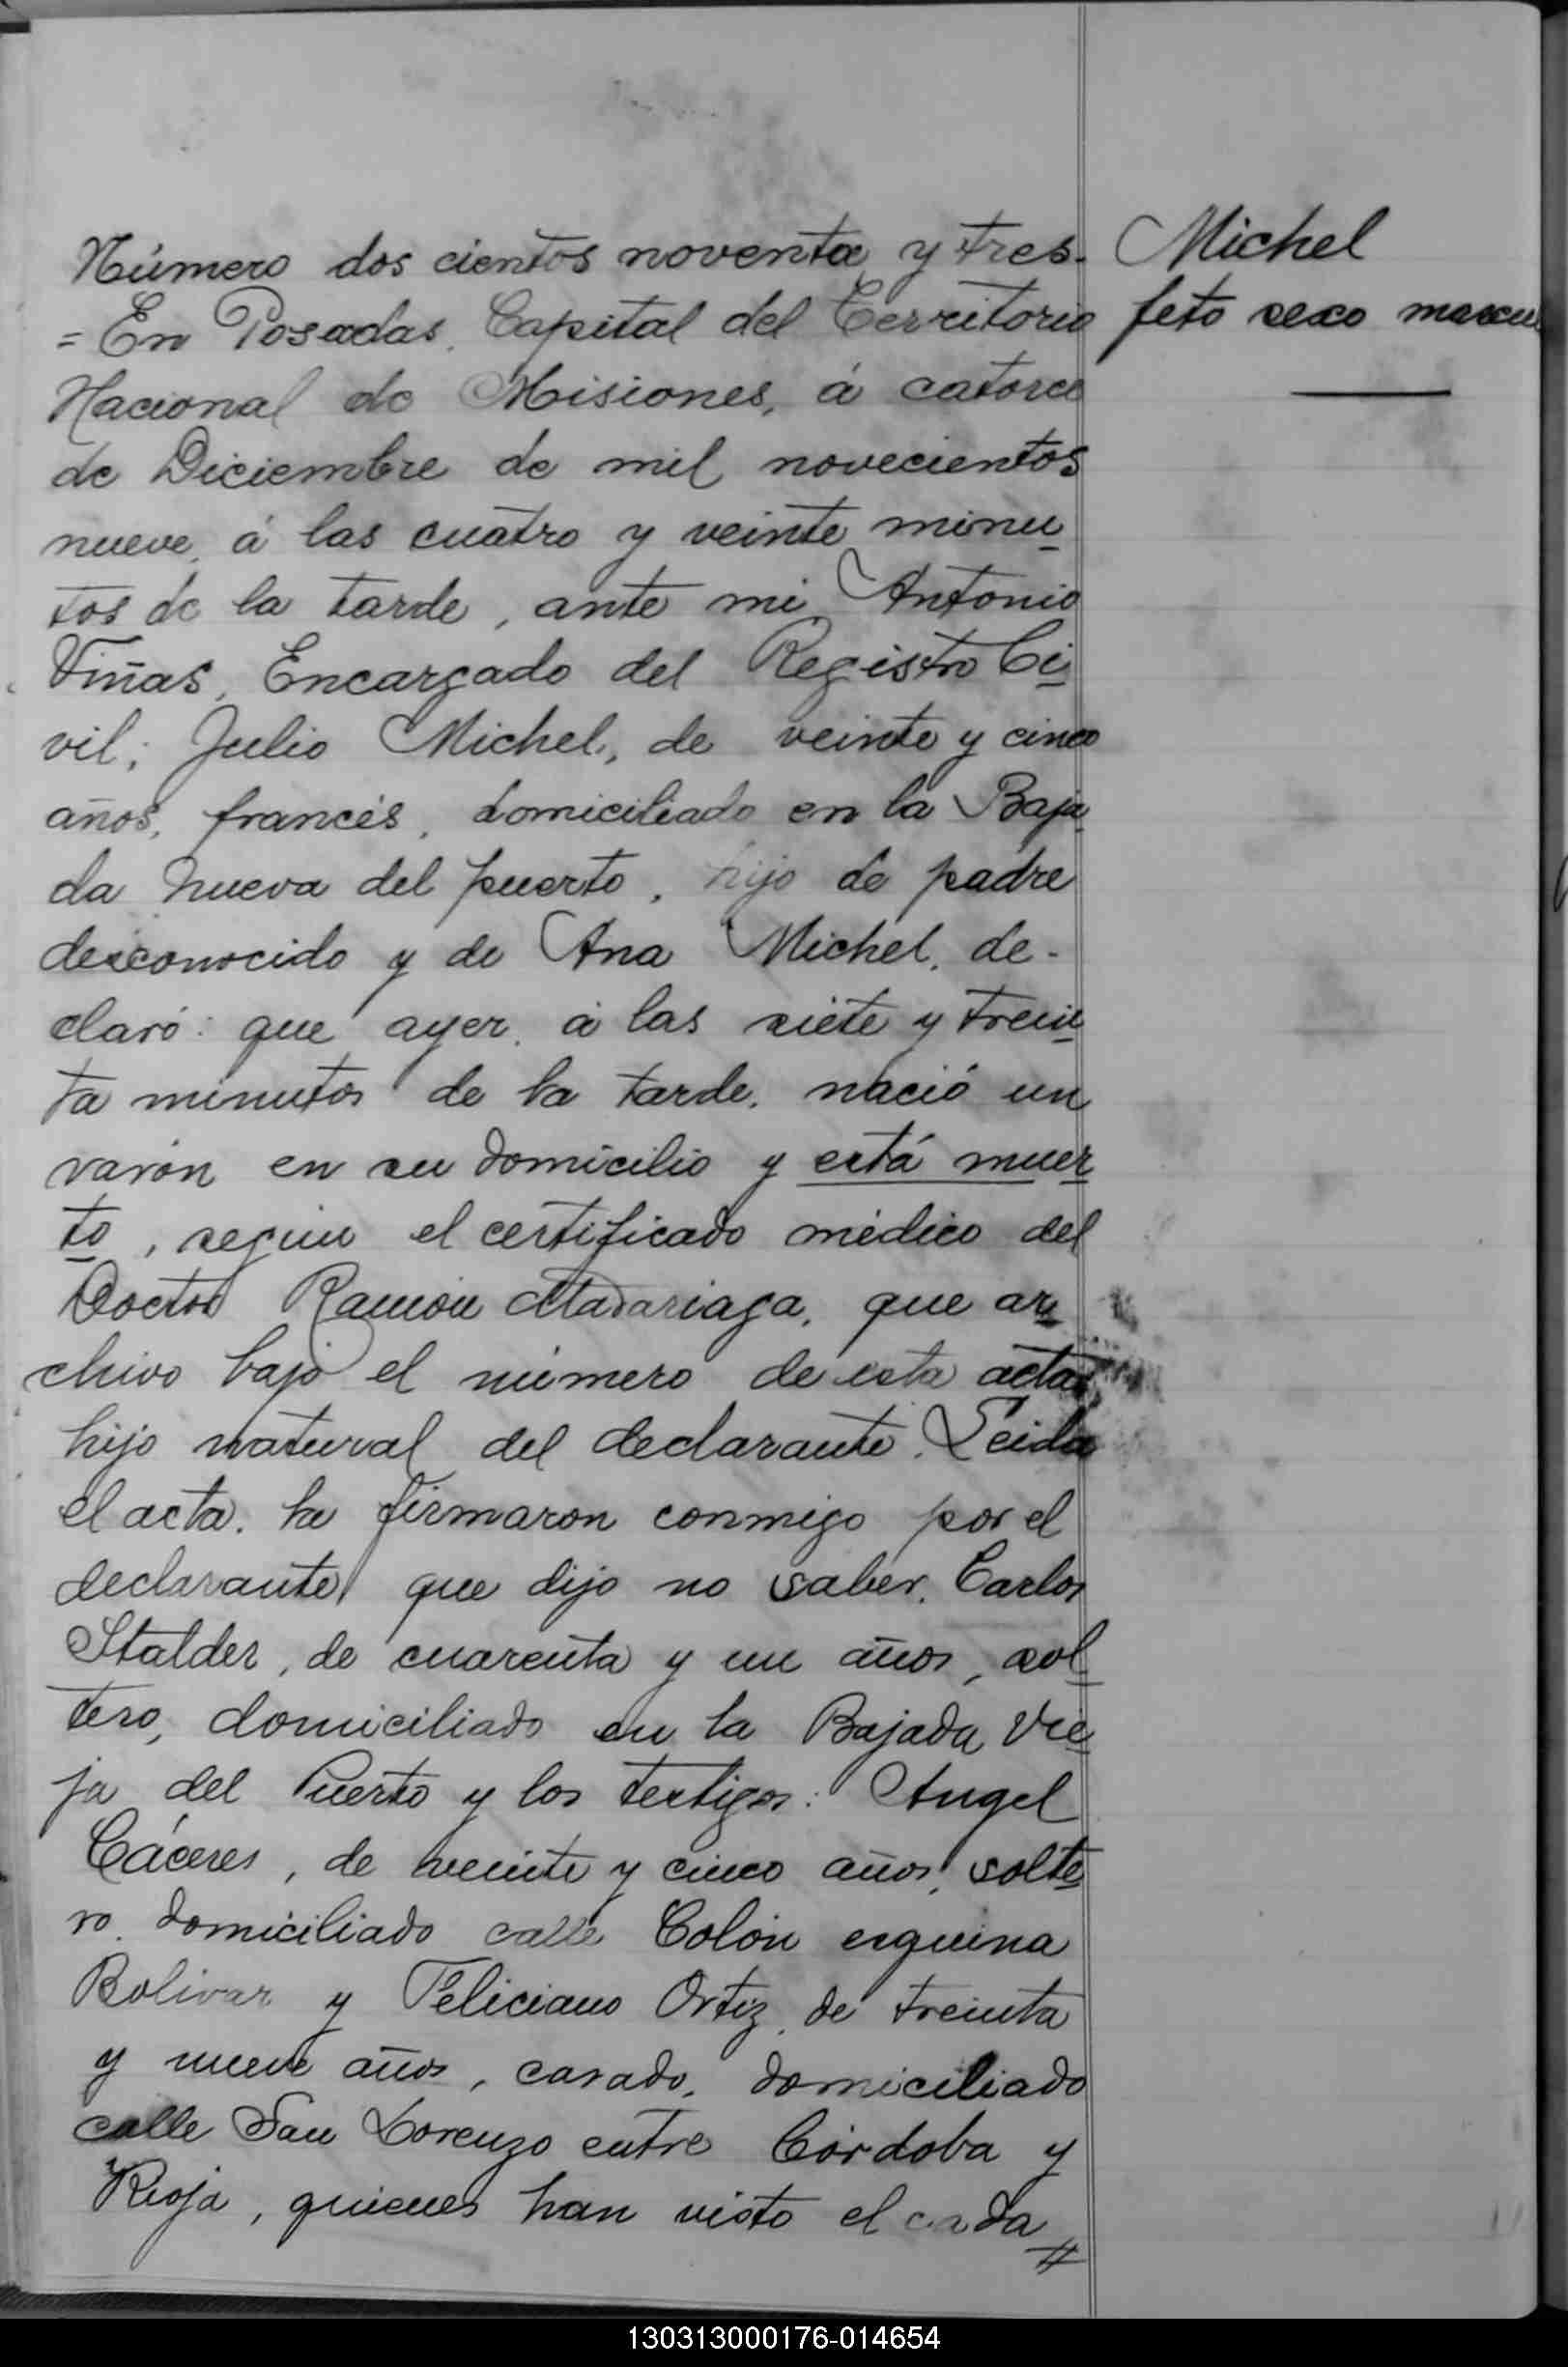 Número dos cientos noventa y tres.
= En Posadas, Capital del Territorio
Nacional de Misiones, á catorce
de Diciembre de mil novecientos
nueve, á las cuatro y veinte minu
tos de la tarde, ante mi Antonio
Viñas, Encargado del Registro Ci
vil; Julio Michel, de veinte y cinco
años, francés, domiciliado en la Baja
da nueva del puerto, hijo de padre
desconocido y de Ana Michel, de-
claró: que ayer, á las siete y trein
ta minutos de la tarde, nació un
varón en su domicilio y está muer
to, segun el certificado médico del
Doctor Ramón Madariaga, que ar
chivo bajo el número de esta acta,
hijo natural del declarante. Leida
el acta, la firmaron conmigo por el
declarante que dijo no saber, Carlos
Stalder, de cuarenta y un años, sol
tero, domiciliado en la Bajada Vie
ja del Puerto y los testigos: Angel
Cáceres, de veinte y cinco años, solte
ro, domiciliado calle Colón esquina
Bolivar y Feliciano Ortiz, de treinta
y nueve años, casado, domiciliado
calle San Lorenzo entre Córdoba y
Rioja, quienes han visto el cada
Michel
feto sexo mascu
130313000176-014654